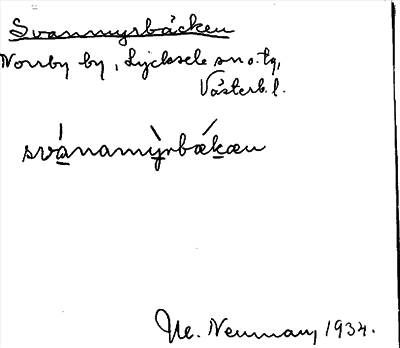 Svanmyrbäcken
Norrby by, Lycksele sn o. tg,
Västerb. l.
svánamỳrbækæn
Neuman, 1934.